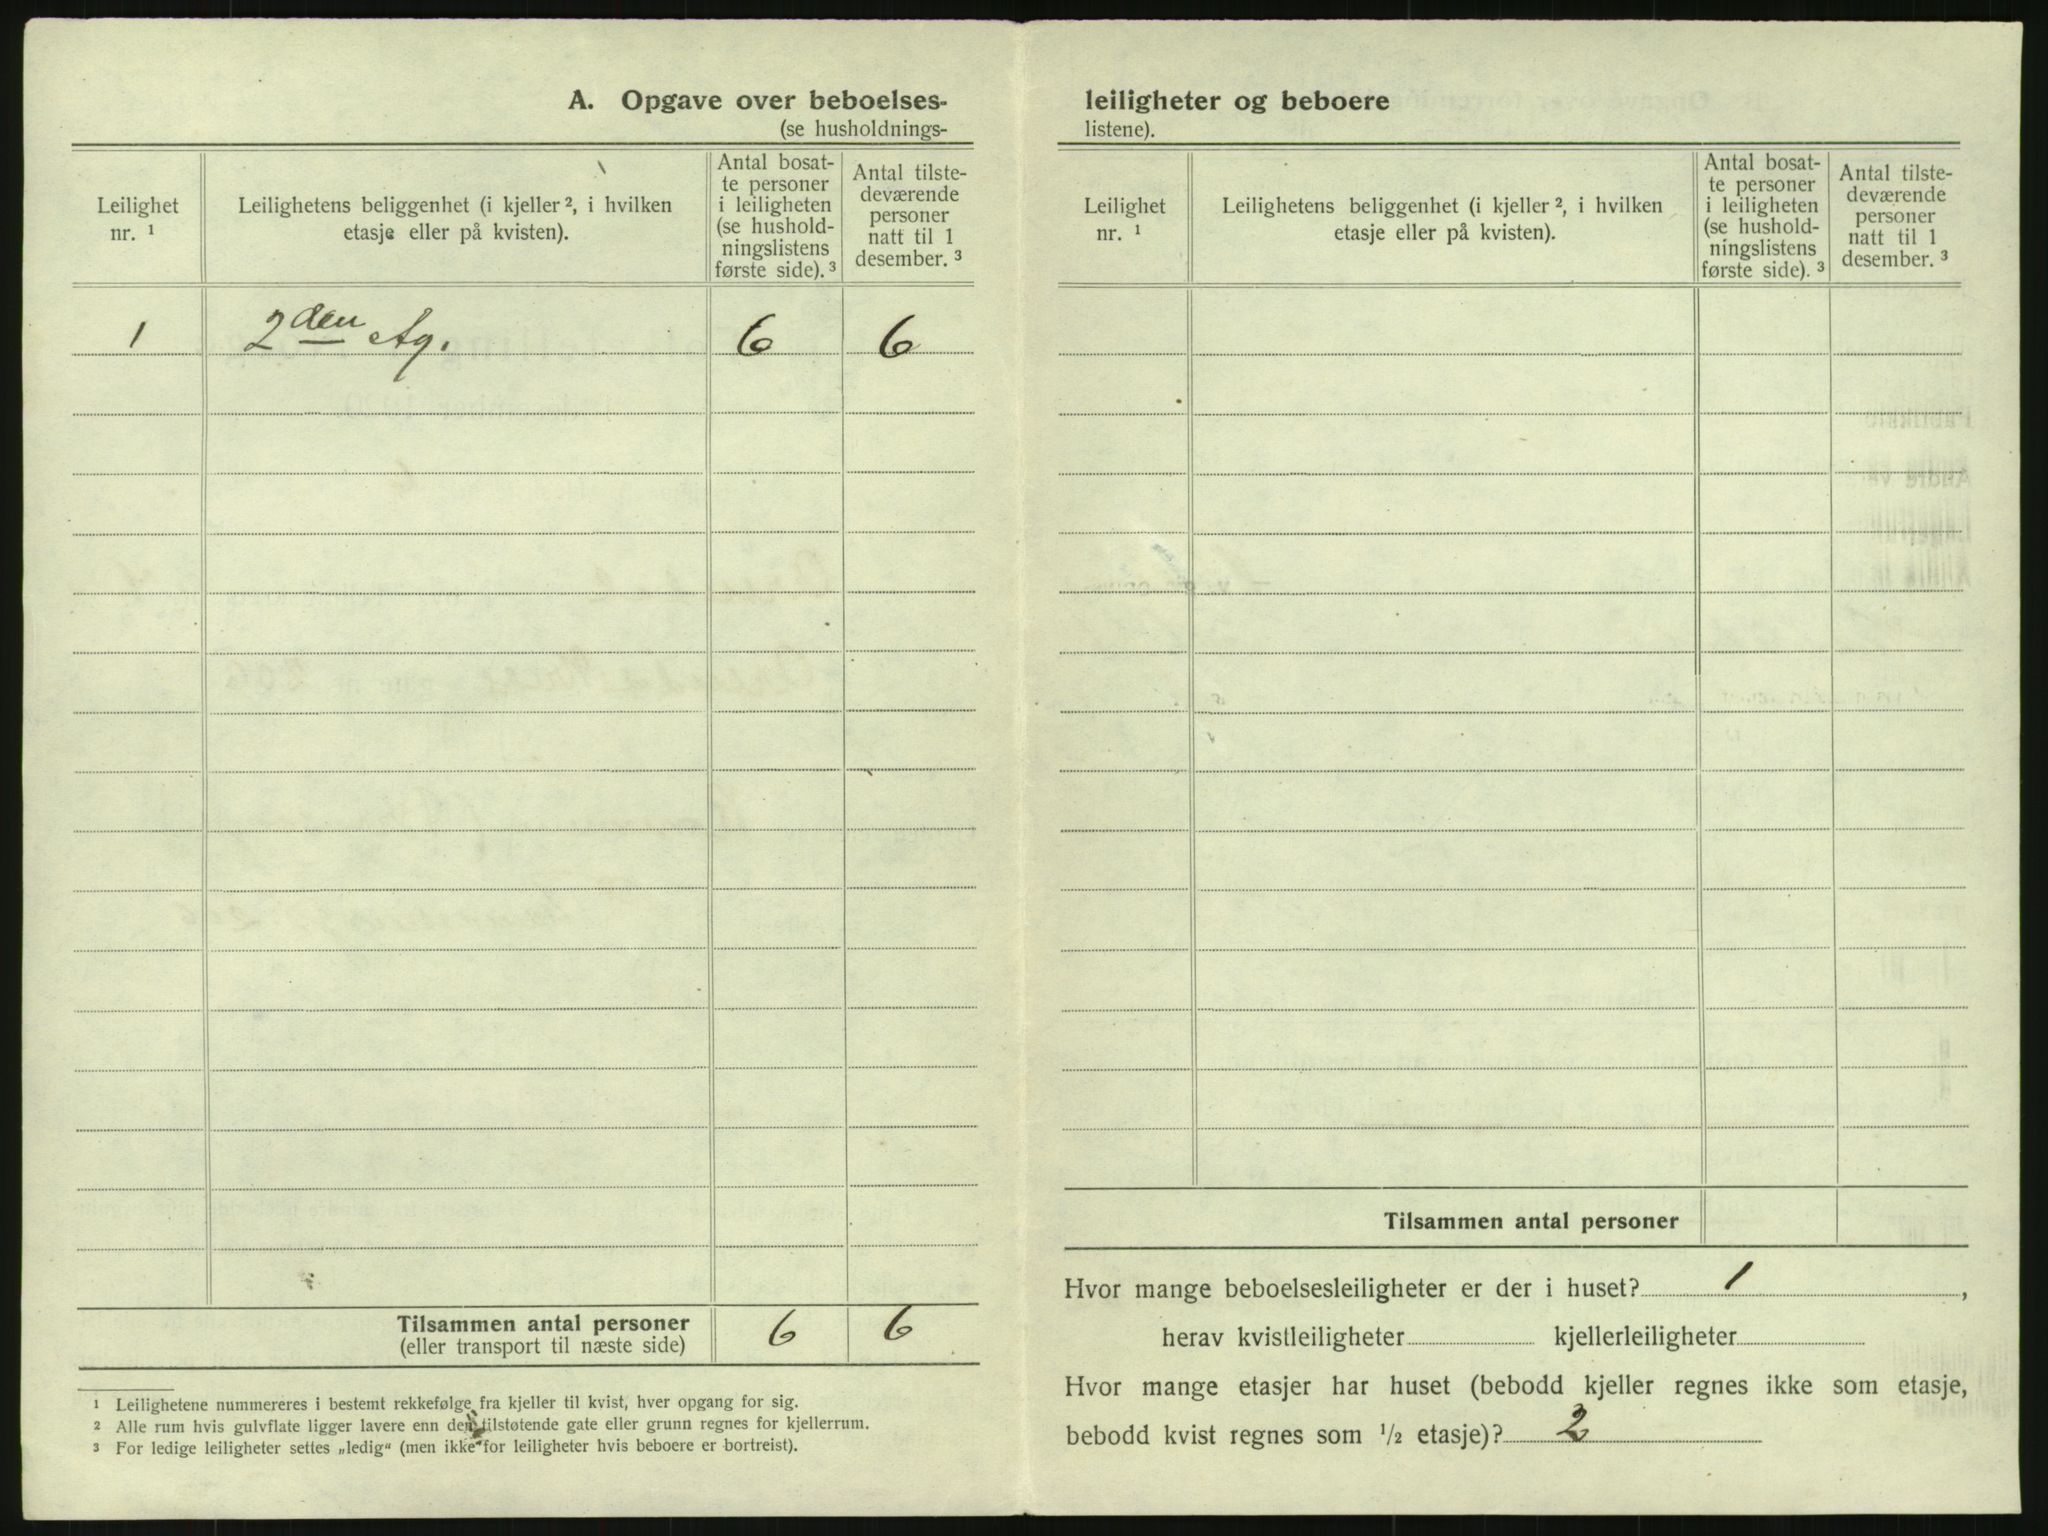 A. Opgave over beboelses-
(se husholdnings-
Leilighet
nr. 1
Leilighetens beliggenhet (i kjeller 2, i hvilken
etasje eller på kvisten).
Antal bosat-
te personer
i leiligheten
(se hushold-
ningslistens
første side). 3
Antal tilste-
deværende
personer
natt til 1
desember. 3
1 2den Etg. 6 6
Tilsammen antal personer 6 6
(eller transport til næste side)
1 Leilighetene nummereres i bestemt rekkefølge fra kjeller til kvist, hver opgang for sig.
2 Alle rum hvis gulvflate ligger lavere enn den tilstøtende gate eller grunn regnes for kjellerrum.
3 For ledige leiligheter settes „ledig“ (men ikke for leiligheter hvis beboere er bortreist).
leiligheter og beboere
listene).
Leilighet
nr. 1
Leilighetens beliggenhet (i kjeller 2, i hvilken
etasje eller på kvisten).
Antal bosat-
te personer
i leiligheten
(se hushold-
ningslistens
første side). 3
Antal tilste-
deværende
personer
natt til 1
desember. 3
Tilsammen antal personer
Hvor mange beboelsesleiligheter er der i huset? 1,
herav kvistleiligheter kjellerleiligheter
Hvor mange etasjer har huset (bebodd kjeller regnes ikke som etasje,
bebodd kvist regnes som 1/2 etasje)? 2